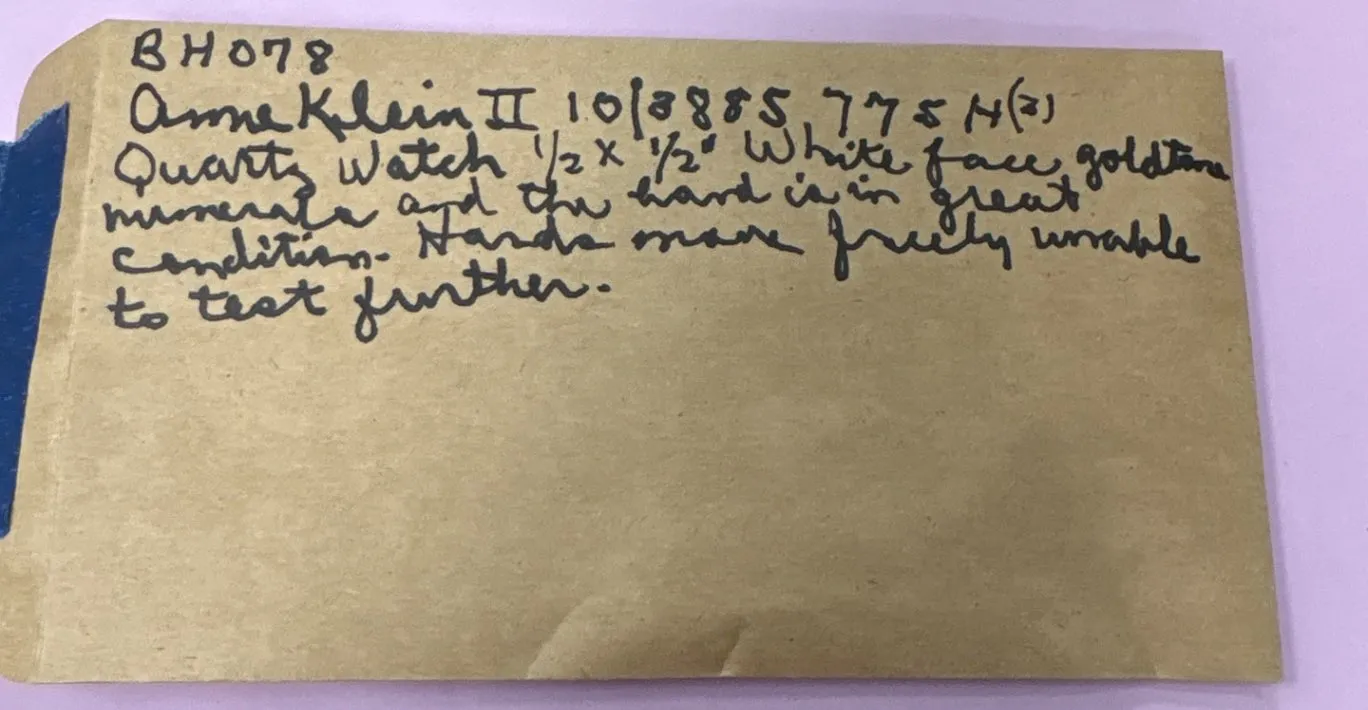 BH078
Anne Klein II 10/3885 775 H(3)
Quartz Watch 1/2 x 1/2" White face goldtone
numerals and the hand is in great
condition. Hands move freely unable
to test further.